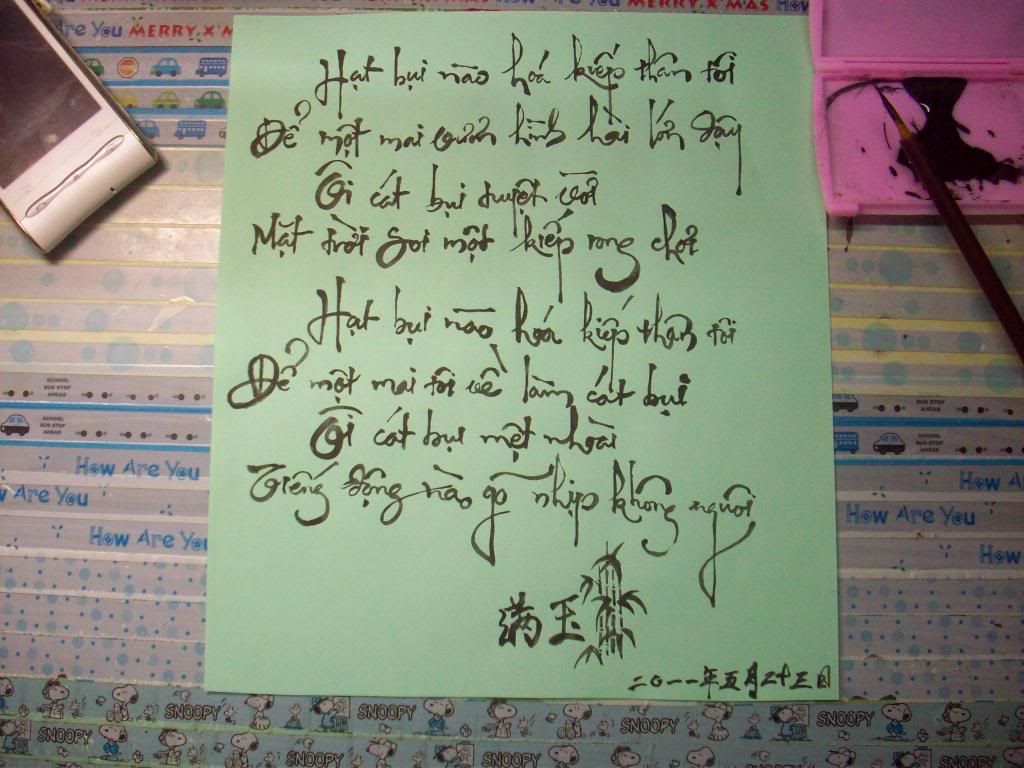 Are You MERRY X'M How Are You MERRY X'MAS How
Hạt bụi nào hoá kiếp thân tôi
Để một mai vươn hình hài lớn dậy
Ôi cát bụi tuyệt vời
Mặt trời soi một kiếp rong chơi
Hạt bụi nào hoá kiếp thân tôi
Để một mai tôi về làm cát bụi
Ôi cát bụi mệt nhoài
Tiếng động nào gõ nhịp không nguôi
满玉
二〇一一年五月二十三日
SCHOOL BUS STOP AHEAD
SCHOOL BUS STOP AHEAD
How Are You
How Are You
How Are You
How Are You
How
SNOOPY SNOOPY SNOOPY SNOOPY
SNOOPY SNOOPY